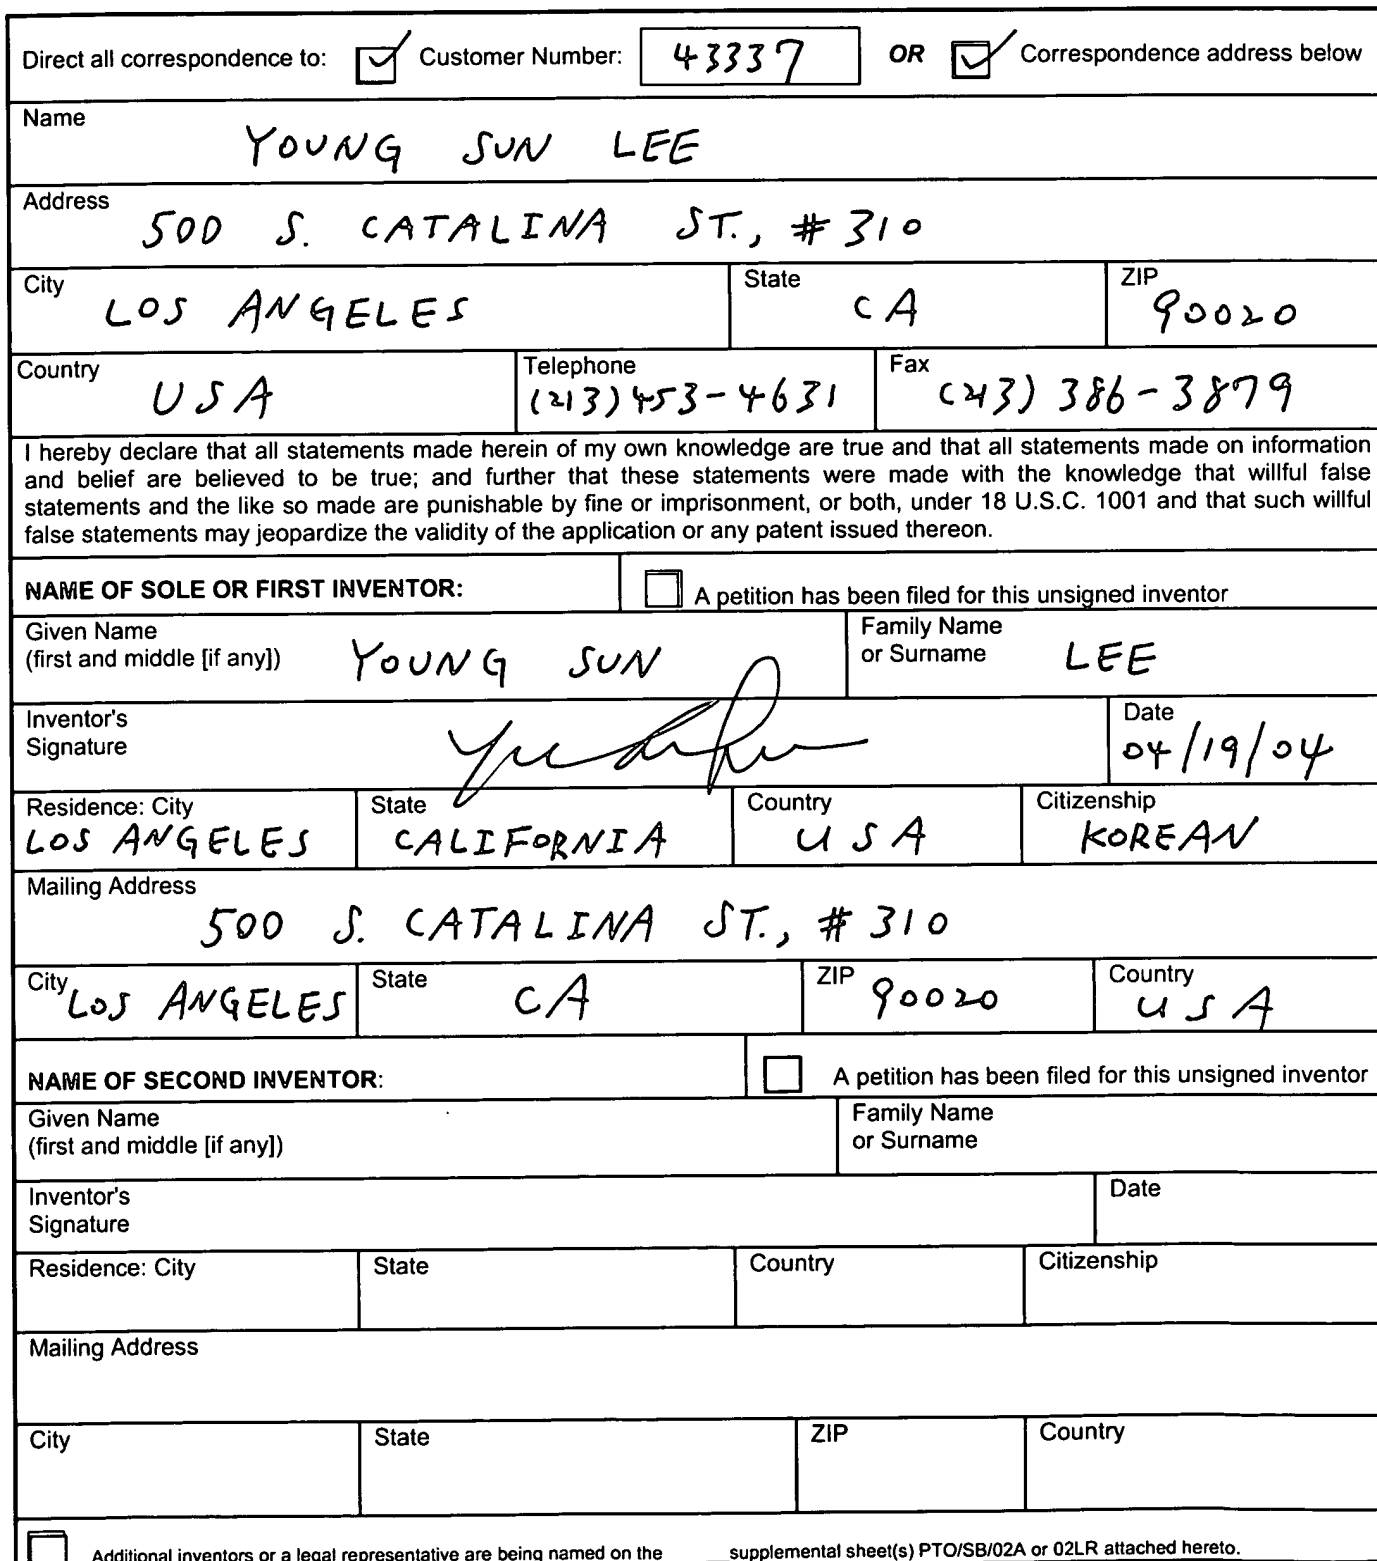 Direct all correspondence to: Customer Number: 43337 OR Correspondence address below
Name
YOUNG SUN LEE
Address
500 S. CATALINA ST., # 310
City State ZIP
LOS ANGELES CA 90020
Country Telephone Fax
USA (213) 453-4631 (213) 386-3879
I hereby declare that all statements made herein of my own knowledge are true and that all statements made on information
and belief are believed to be true; and further that these statements were made with the knowledge that willful false
statements and the like so made are punishable by fine or imprisonment, or both, under 18 U.S.C. 1001 and that such willful
false statements may jeopardize the validity of the application or any patent issued thereon.
NAME OF SOLE OR FIRST INVENTOR: A petition has been filed for this unsigned inventor
Given Name Family Name
(first and middle [if any]) YOUNG SUN or Surname LEE
Inventor's Date
Signature 04/19/04
Residence: City State Country Citizenship
LOS ANGELES CALIFORNIA USA KOREAN
Mailing Address
500 S. CATALINA ST., # 310
City State ZIP Country
LOS ANGELES CA 90020 USA
NAME OF SECOND INVENTOR: A petition has been filed for this unsigned inventor
Given Name Family Name
(first and middle [if any]) or Surname
Inventor's Date
Signature
Residence: City State Country Citizenship
Mailing Address
City State ZIP Country
Additional inventors or a legal representative are being named on the supplemental sheet(s) PTO/SB/02A or 02LR attached hereto.